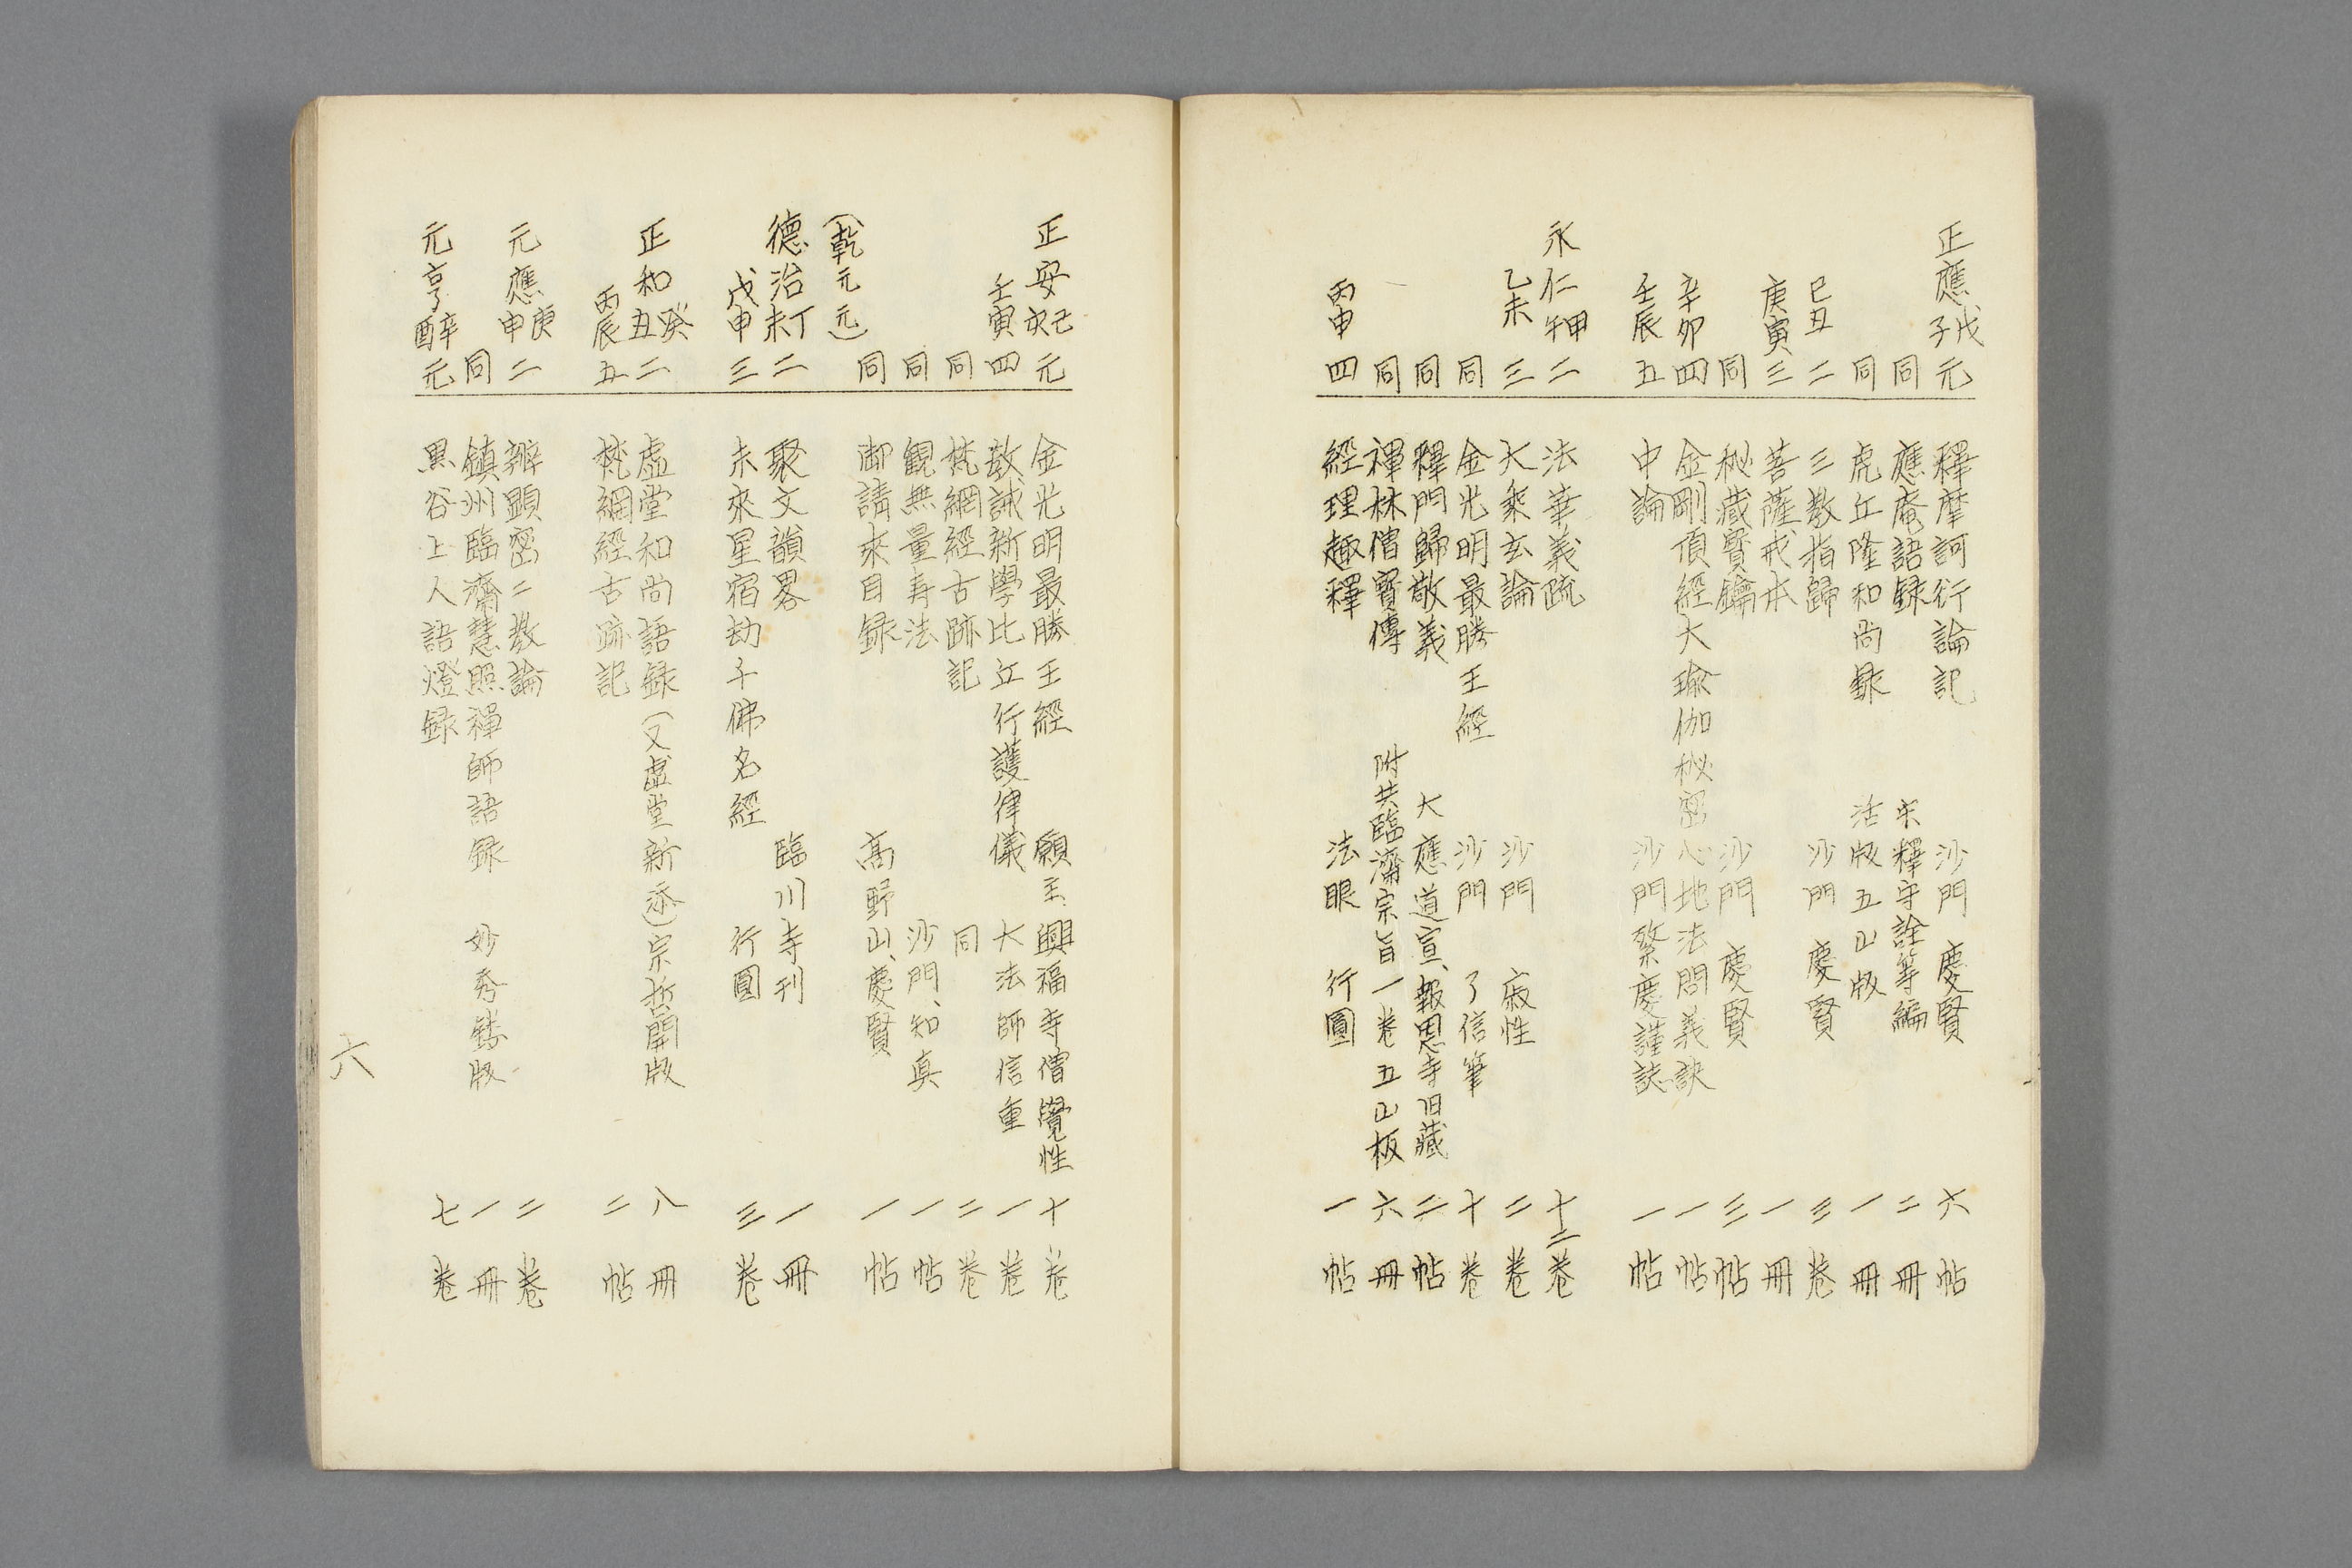 正應戊子元 釋摩訶衍論記 沙門 慶賢 六帖
同 應庵語録 宋釋守詮等編 二冊
同 虎丘隆和尚録 活版五山版 一冊
己丑二 三教指歸 沙門 慶賢 三卷
庚寅三 菩薩戒本 一冊
同 秘藏寳鑰 沙門 慶賢 三帖
辛卯四 金剛頂經大瑜伽秘密心地法門義訣 一帖
壬辰五 中論 沙門 慶謹誌 一帖
永仁甲午二 法華義疏 十二卷
乙未三 大乘玄論 沙門 寂性 二卷
同 金光明最勝王經 沙門 了信筆 十卷
同 釋門歸敬義 大應道宣、報恩寺旧藏 二帖
同 禪林僧寳傳 附共臨濟宗旨一卷五山板 六冊
丙申四 經理趣釋 法眼 行圓 一帖
正安己亥元 金光明最勝王經 願主興福寺僧覺性 十卷
壬寅四 敎誡新學比丘行護律儀 大法師信重 一卷
同 梵網經古跡記 同 二卷
同 観無量寿法 沙門、知真 一帖
同 御請來目録 高野山、慶賢 一帖
(乾元元)
德治丁未二 聚文韻畧 臨川寺刊 一冊
戊申三 未來星宿劫千佛名經 行圓 三卷
正和癸丑二 虚堂和尚語録(又虚堂新添)宗哲開版 八冊
丙辰五 梵網經古跡記 二帖
元應庚申二 辨顕密二教論 二卷
同 鎮州臨濟慧照禪師語録 妙秀鋟版 一冊
元亨辛酉元 黒谷上人語燈録 七卷
六